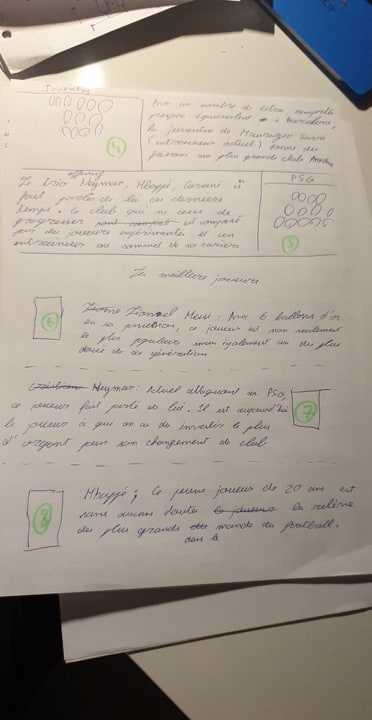 Juventus
Avec un nombre de titres remportés
presque équivalent à Barcelone,
la Juventus de Maurizio Sarri
(entraineur actuel) donne des
frissons au plus grands club
4
Le trio offensif Neymar, Mbappé, Cavani à
fait parler de lui ces derniers
temps. Le club qui ne cesse de
progresser est composé
par des joueurs expérimentés et un
entraineur au sommet de sa carrière
PSG
5
Les meilleurs joueurs
6
Lionel Messi : Avec 6 ballons d'or
en sa possession, ce joueur est non seulement
le plus populaire mais également un des plus
doués de sa génération
Neymar : Actuel attaquant au PSG,
ce joueur fait parlé de lui. Il est aujourd'hui
le joueur a qui on a du investir le plus
d'argent pour son changement de club
7
8
Mbappé ; Ce jeune joueur de 20 ans est
sans aucuns doute la relève
des plus grands dans le monde du football.